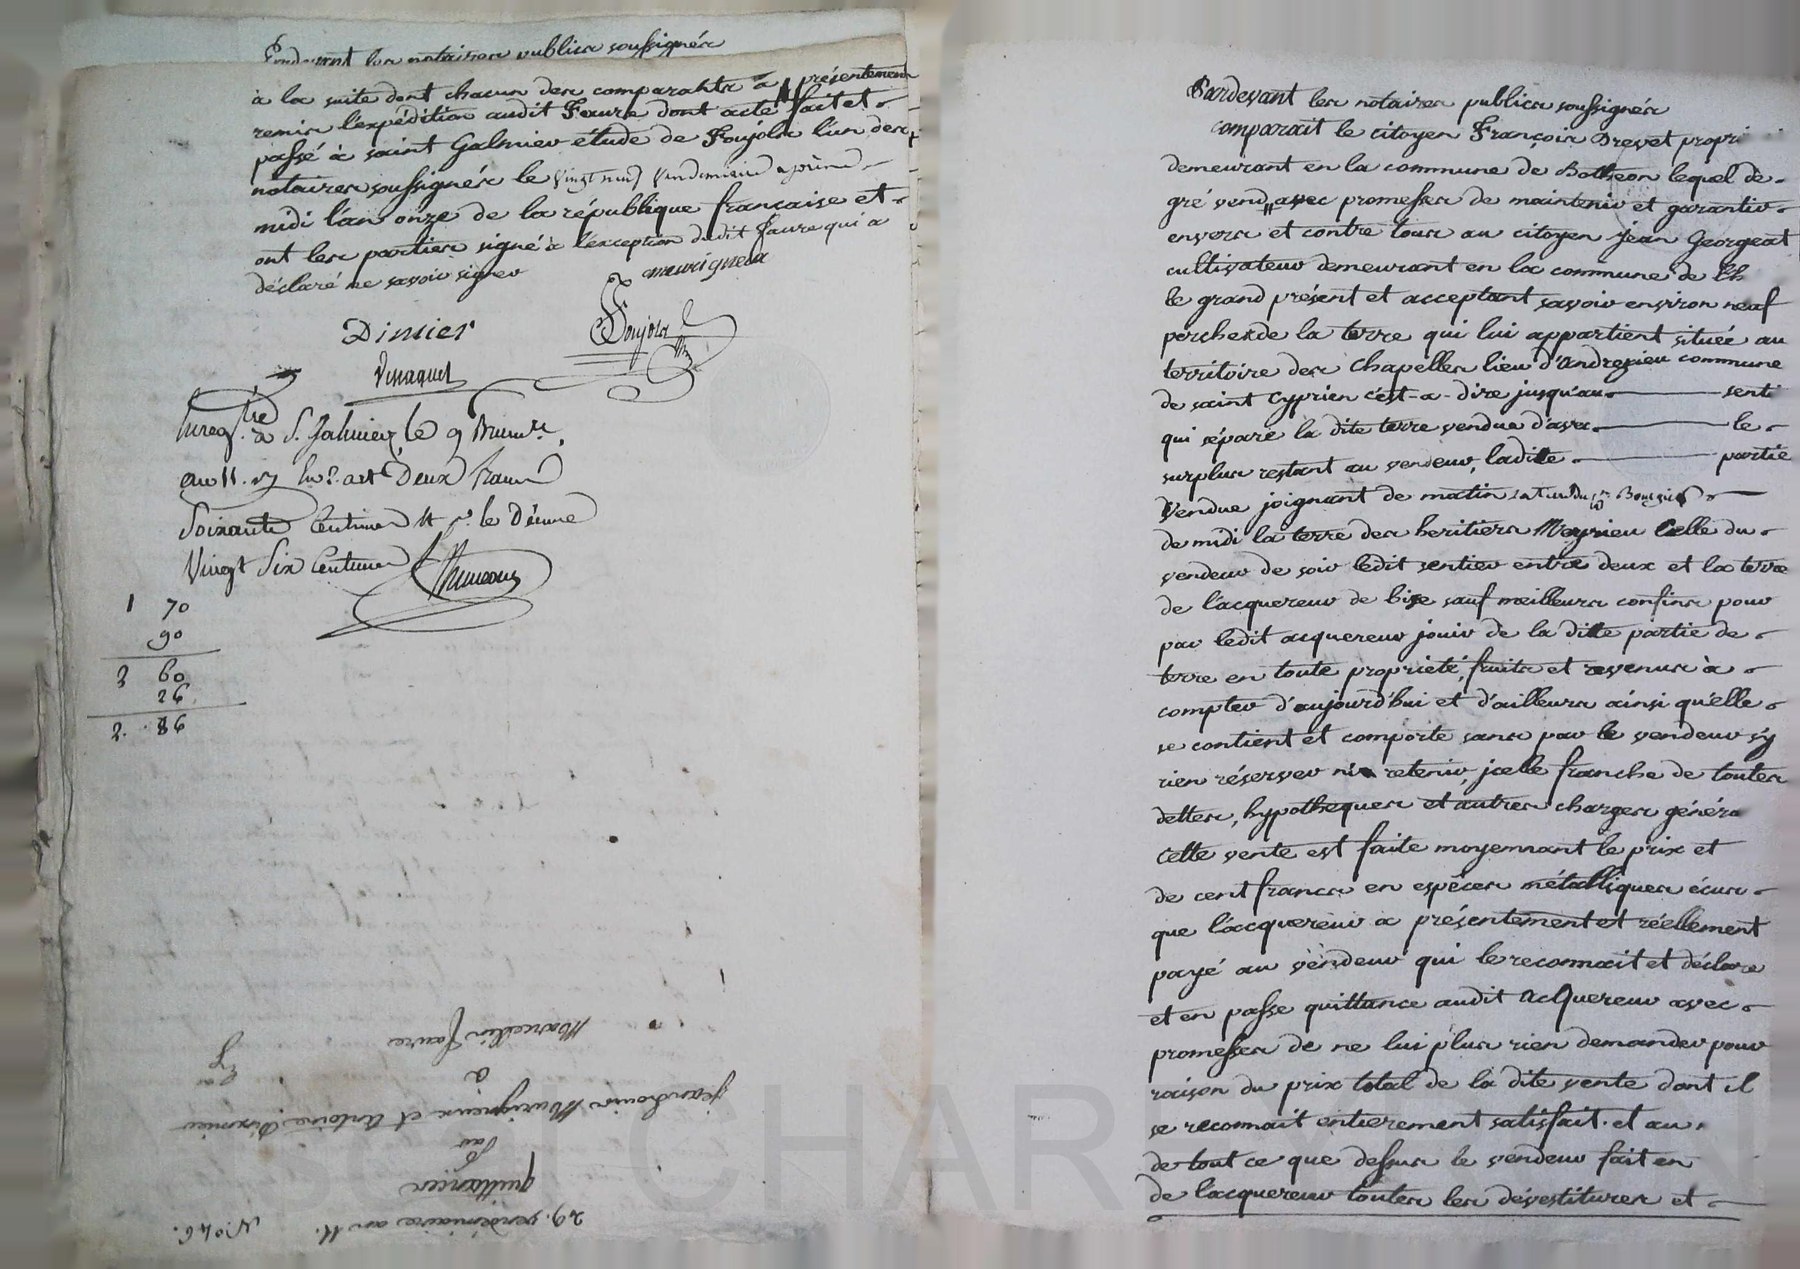 Pardevant les notaires publics soussignés
à la suite dont chacun des comparants a présentement
remis l'expédition audit Faure dont acte fait et
passé à saint Galmier étude de Foujols l'un des
notaires soussignés le vingt neuf vendemiaire après
midi l'an onze de la république française et
ont les parties signé à l'exception dudit faure qui a
déclaré ne savoir signer
maurigneux
Dimier
Foujols
Enreg.tré à S. Galmier, le 9 Brum.re,
an 11. Deux francs
Soixante Centimes le Décime
Vingt Six Centimes
1 70
90
2 60
26
2. 86
Marcellin faure
à
jean Louis Maurigneux et Antoine Dismier
Par
quittances
29. vendémiaire an 11. N.° 46.
Pardevant les notaires publics soussignés
comparait le citoyen François Brevet propri
demeurant en la commune de Botheon lequel de
gré vend, avec promesses de maintenir et garantir
envers et contre tous au citoyen Jean Georgeat
cultivateur demeurant en la commune de Ch
le grand présent et acceptant savoir environ neuf
perches de la terre qui lui appartient située au
territoire des Chapelles lieu d'andrezieu commune
de saint Cyprien c'est-a-dire jusqu'au senti
qui sépare la dite terre vendue d'avec le
surplus restant au vendeur, ladite partie
Vendue joignant de matin la terre du s.r
de midi la terre des heritiers Meyrieu Celle du
vendeur de soir ledit sentier entre deux et la terre
de l'acquereur de bize sauf meilleurs confins pour
par ledit acquereur jouir de la dite partie de
terre en toute propriété, fruits et revenus à
compter d'aujourd'hui et d'ailleurs ainsi qu'elle
se contient et comporte sans par le vendeur s'y
rien réserver ni retenir, icelle franche de toutes
dettes, hypotheques et autres charges généra
Cette vente est faite moyennant le prix et
de cent francs en espèces métalliques écus
que l'acquereur a présentement et réellement
payé au vendeur qui le reconnait et déclare
et en passe quittance audit acquereur avec
promesses de ne lui plus rien demander pour
raison du prix total de la dite vente dont il
se reconnait entierement satisfait. et au
de tout ce que dessus le vendeur fait en
de l'acquereur toutes les dévestitures et